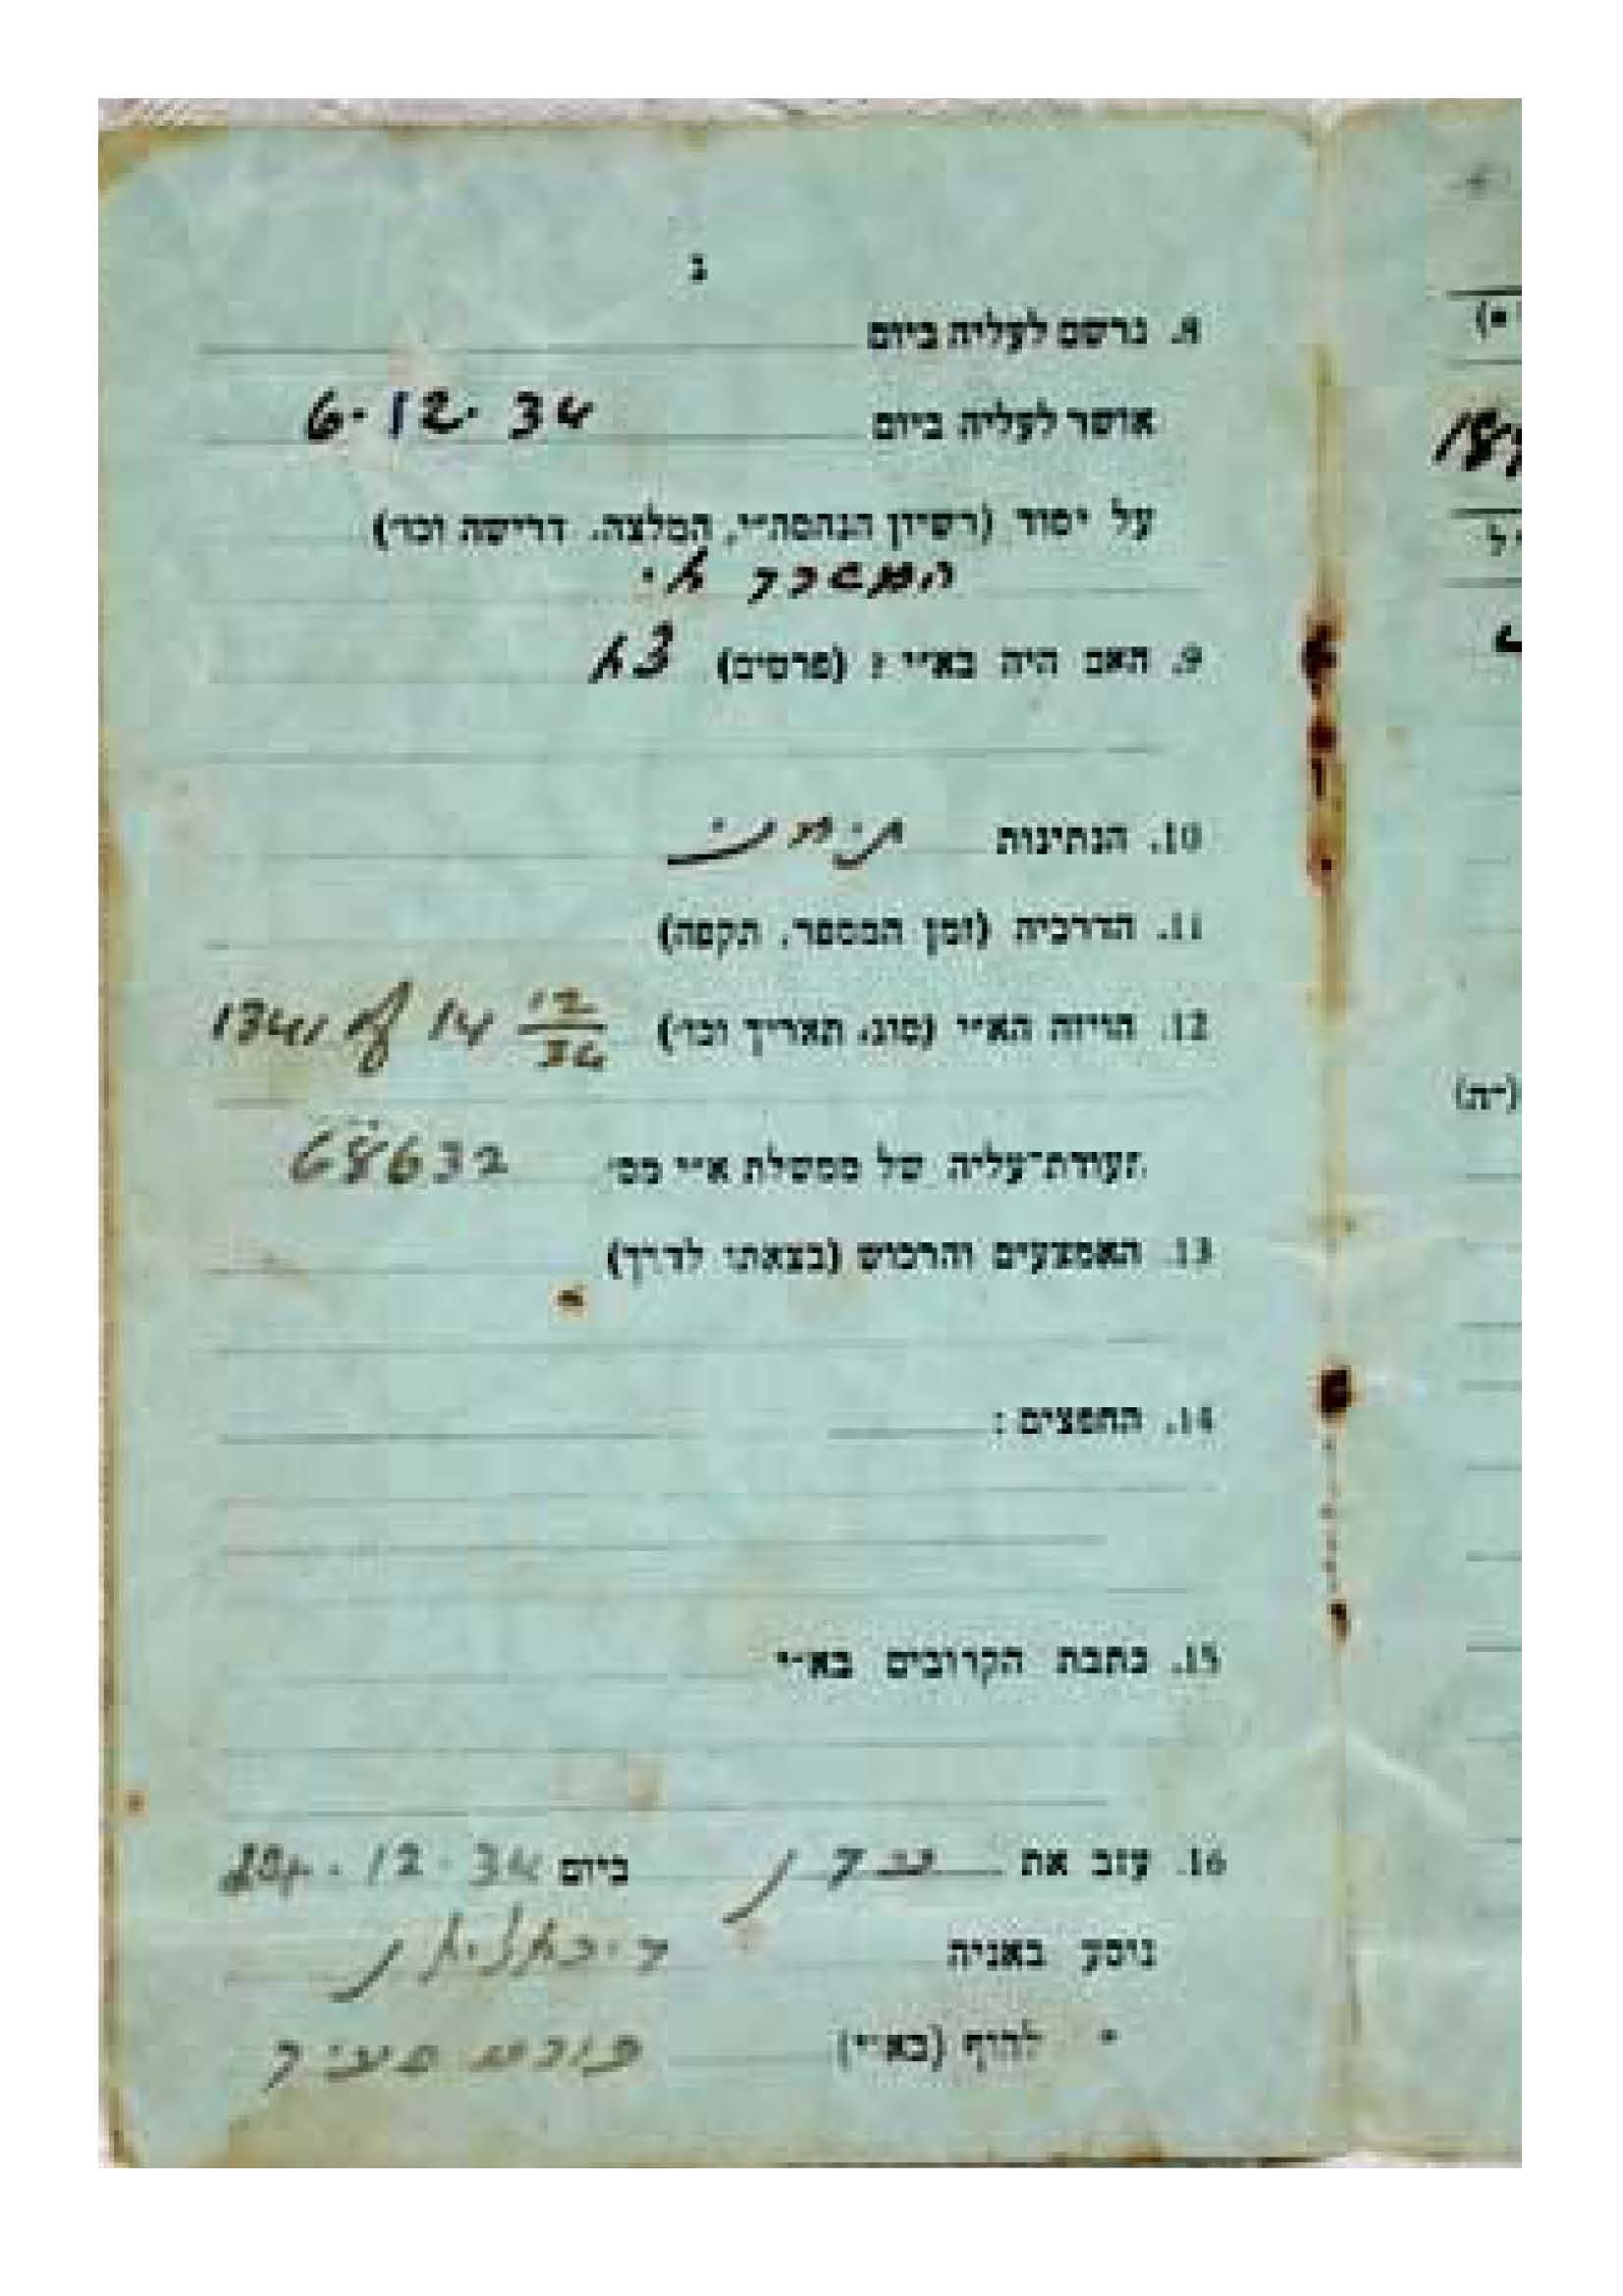 ג
8. נרשם לעליה ביום
אושר לעליה ביום 6.12.34
על יסוד (רשיון הנהסה״י, המלצה, דרישה וכו׳)
9. האם היה בא״י ? (פרטים) לא
10. הנתינות תימני
11. הדרכיה (זמן המספר, תקפה)
12. הויזה הא״י (סוג, תאריך וכו׳) 14 12/34 of 1341
תעודת־עליה של ממשלת א״י מס׳ 68632
13. האמצעים והרכוש (בצאתו לדרך)
14. החפצים :
15. כתבת הקרובים בא״י
16. עזב את עדן ביום 24.12.34
נוסע באניה
" לחוף (בא״י) פורט סעיד